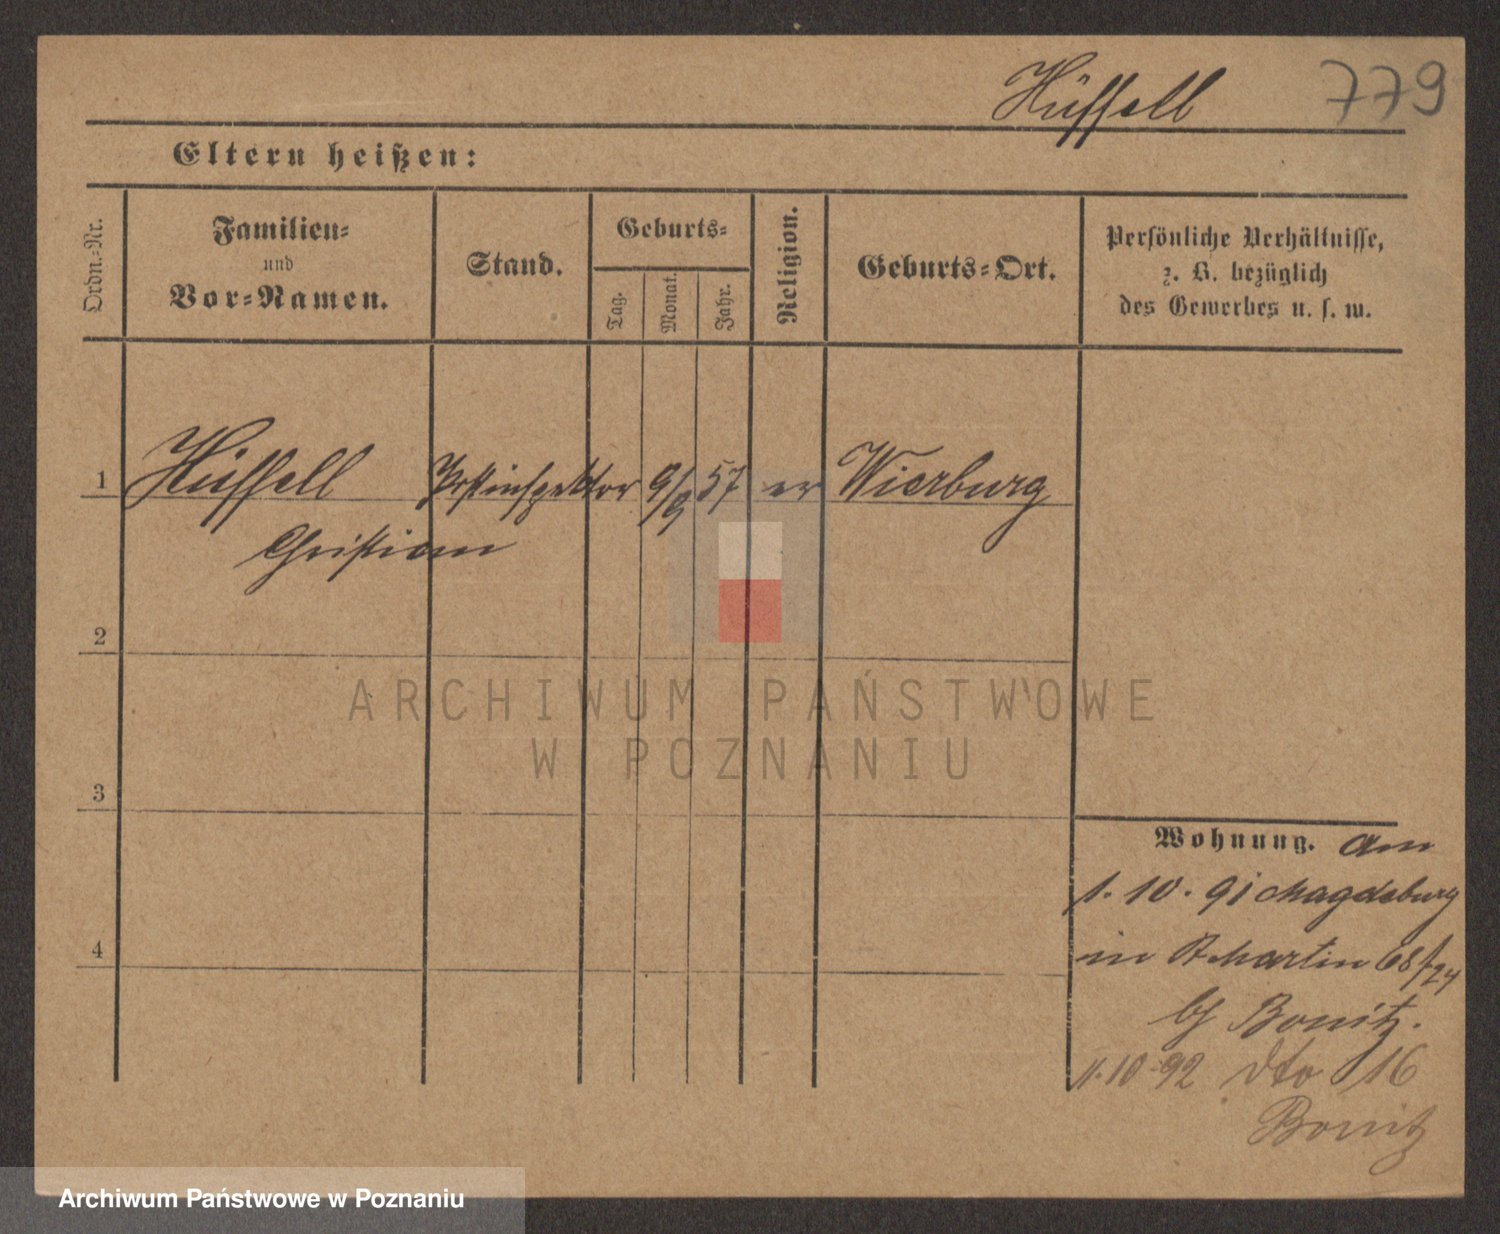 Hüffell 779
Eltern heißen:
Ordn.-Nr.
Familien-
und
Vor-Namen.
Stand.
Geburts-
Tag.
Monat.
Jahr.
Religion.
Geburts-Ort.
Persönliche Verhältnisse,
z. B. bezüglich
des Gewerbes u. s. w.
1 Hüffell Postinspektor 9/9 57 ev Wierburg
Christian
2
3
4
Wohnung. am
1. 10. 91 Magdeburg
in St Martin 68/24
bf Bonitz.
1.10.92 dto 16
Bonitz
ARCHIWUM PAŃSTWOWE
W POZNANIU
Archiwum Państwowe w Poznaniu